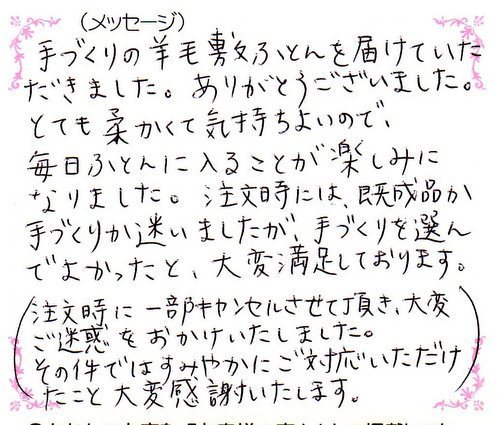 (メッセージ)
手づくりの羊毛敷ふとんを届けていた
だきました。ありがとうございました。
とても柔かくて気持ちよいので、
毎日ふとんに入ることが楽しみに
なりました。注文時には、既成品か
手づくりか迷いましたが、手づくりを選ん
でよかったと、大変満足しております。
(注文時に一部キャンセルさせて頂き、大変
ご迷惑をおかけいたしました。
その件ではすみやかにご対応いただけ
たこと大変感謝いたします。)